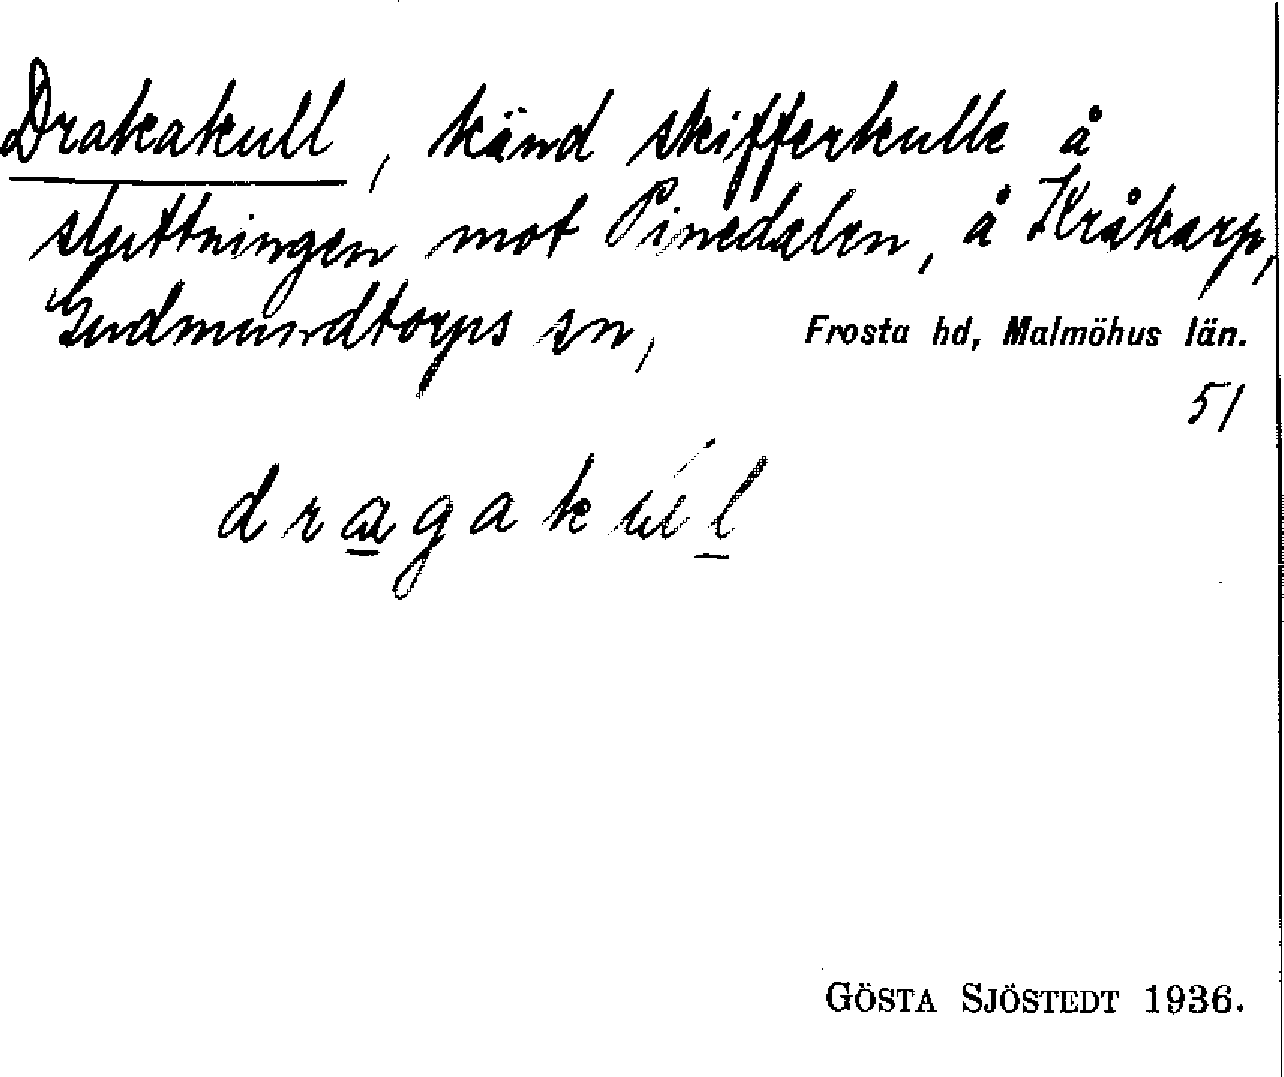 Drakakull, känd skifferkulle å
sluttningen mot Pinedalen, å Kråkarp,
Gudmundtorps sn, Frosta hd, Malmöhus län.
51
dragakúl
GÖSTA SJÖSTEDT 1936.